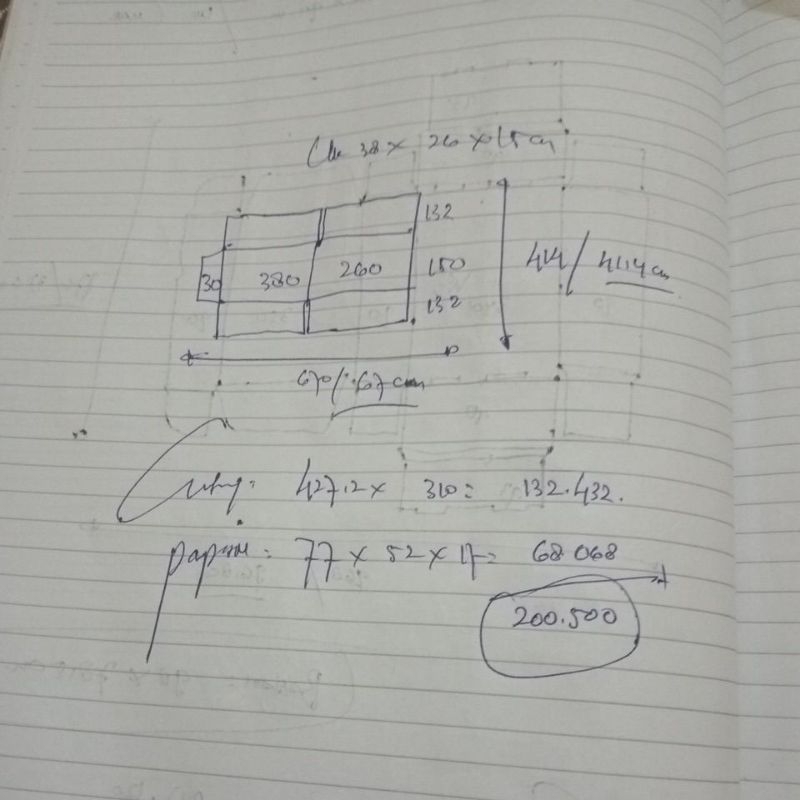 38 x 26 x 15 cm
132
30 380 260 150 414 / 41.4 cm
132
670 / 67 cm
427.2 x 310 = 132.432.
papan = 77 x 52 x 17 = 68.068
200.500